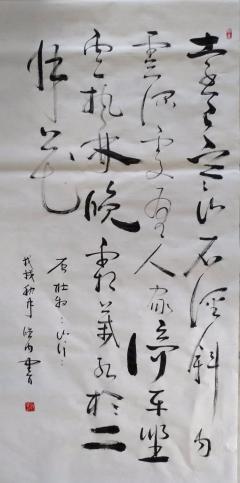 远上寒山石径斜白
云深处有人家停车坐
爱枫林晚霜叶红于二
月花
唐杜牧山行
戊戌秋月
书